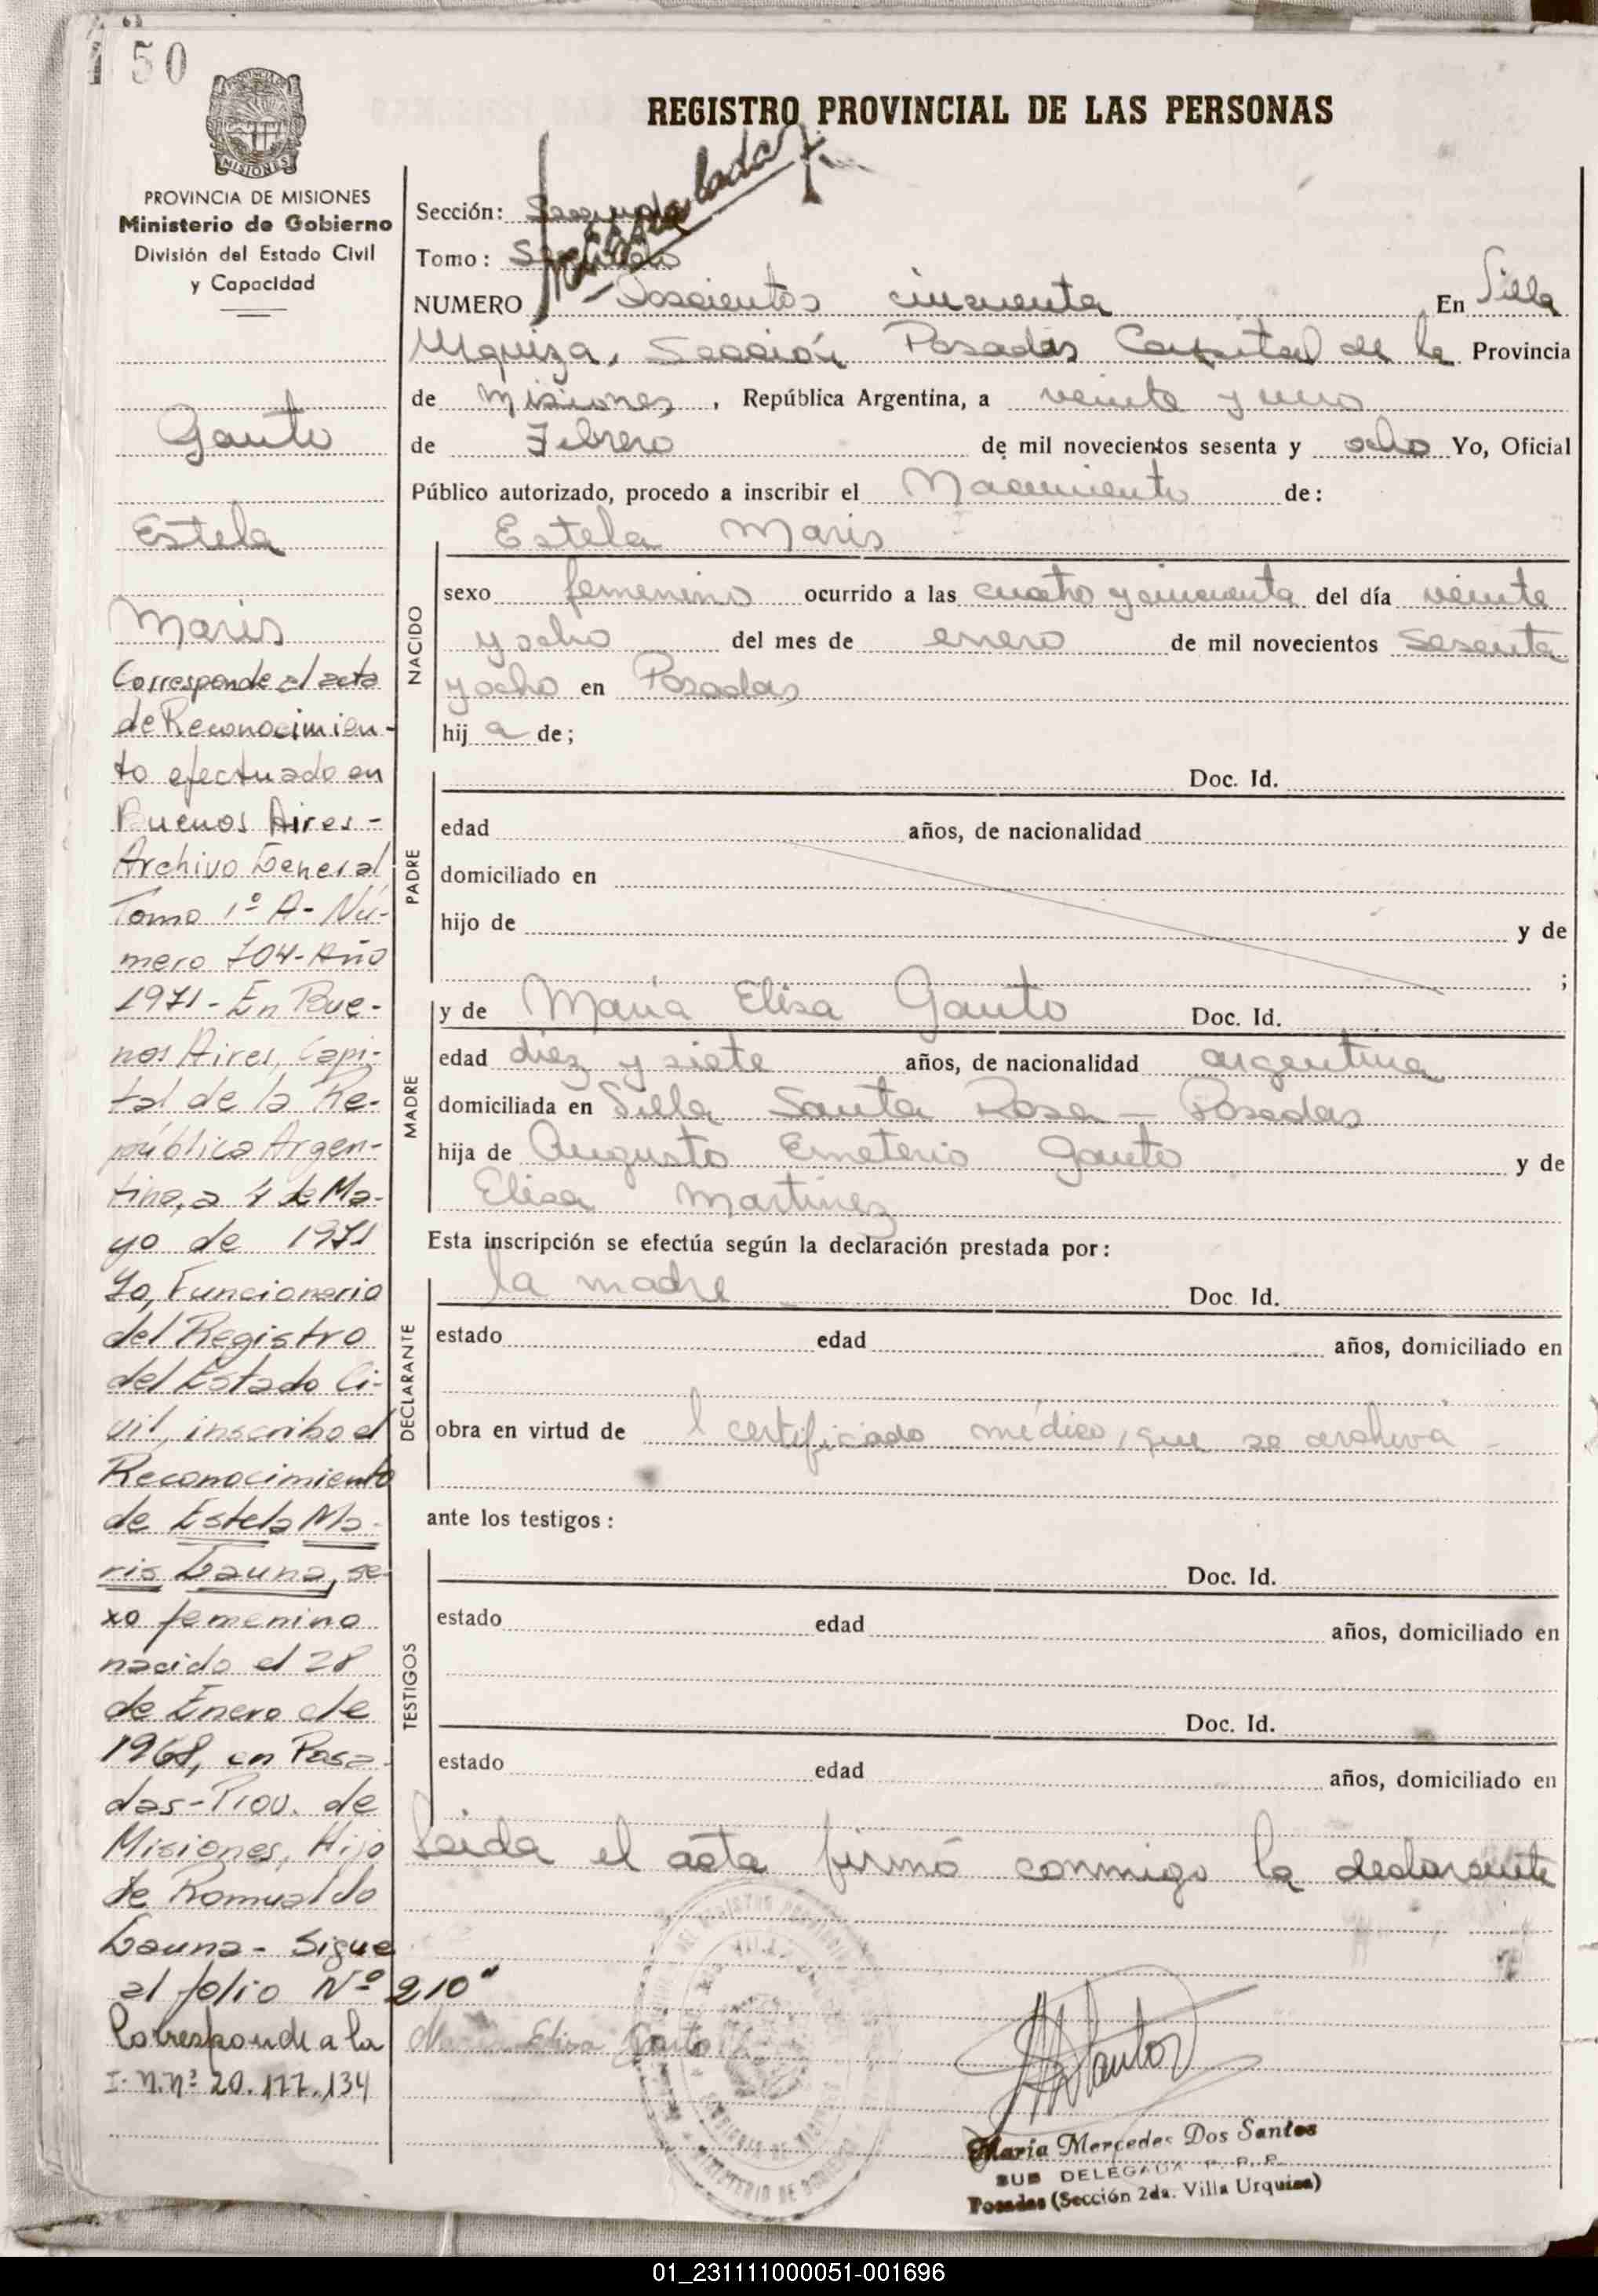 150
REGISTRO PROVINCIAL DE LAS PERSONAS
MISIONES
PROVINCIA DE MISIONES
Ministerio de Gobierno
División del Estado Civil
y Capacidad
Gauto
Estela
Maris
Corresponde al acta
de Reconocimien-
to efectuado en
Buenos Aires-
Archivo General
Tomo 1º A- Nú-
mero 704- Año
1971- En Bue-
nos Aires, Capi-
tal de la Re-
pública Argen-
tina, a 4 de Ma-
yo de 1971
Yo, Funcionario
del Registro
del Estado Ci-
vil, inscribo el
Reconocimiento
de Estela Ma-
ris Gauna, se-
xo femenino
nacido el 28
de Enero de
1968, en Posa-
das-Prov. de
Misiones, Hijo
de Romualdo
Gauna- Sigue
al folio Nº 210"
Corresponde a la
I.N.Nº 20.177.134
Sección: Segunda
Tomo: Segundo
NUMERO Doscientos cincuenta En Villa
Urquiza, Sección Posadas Capital de la Provincia
de Misiones, República Argentina, a veinte y uno
de Febrero de mil novecientos sesenta y ocho Yo, Oficial
Público autorizado, procedo a inscribir el Nacimiento de:
NACIDO
Estela Maris
sexo femenino ocurrido a las cuatro y cincuenta del día veinte
y ocho del mes de enero de mil novecientos sesenta
y ocho en Posadas
hij a de;
PADRE
Doc. Id.
edad años, de nacionalidad
domiciliado en
hijo de y de
;
MADRE
y de María Elisa Gauto Doc. Id.
edad diez y siete años, de nacionalidad argentina
domiciliada en Villa Santa Rosa - Posadas
hija de Augusto Emeterio Gauto y de
Elisa Martinez
Esta inscripción se efectúa según la declaración prestada por:
DECLARANTE
la madre Doc. Id.
estado edad años, domiciliado en
obra en virtud de l certificado médico, que se archiva -
ante los testigos:
TESTIGOS
Doc. Id.
estado edad años, domiciliado en
Doc. Id.
estado edad años, domiciliado en
Leida el acta firmó conmigo la declarante
María Elisa Gauto
MINISTERIO DE GOBIERNO
Maria Mercedes Dos Santos
SUB DELEGADA R. P. P.
Posadas (Sección 2da. Villa Urquiza)
01_231111000051-001696